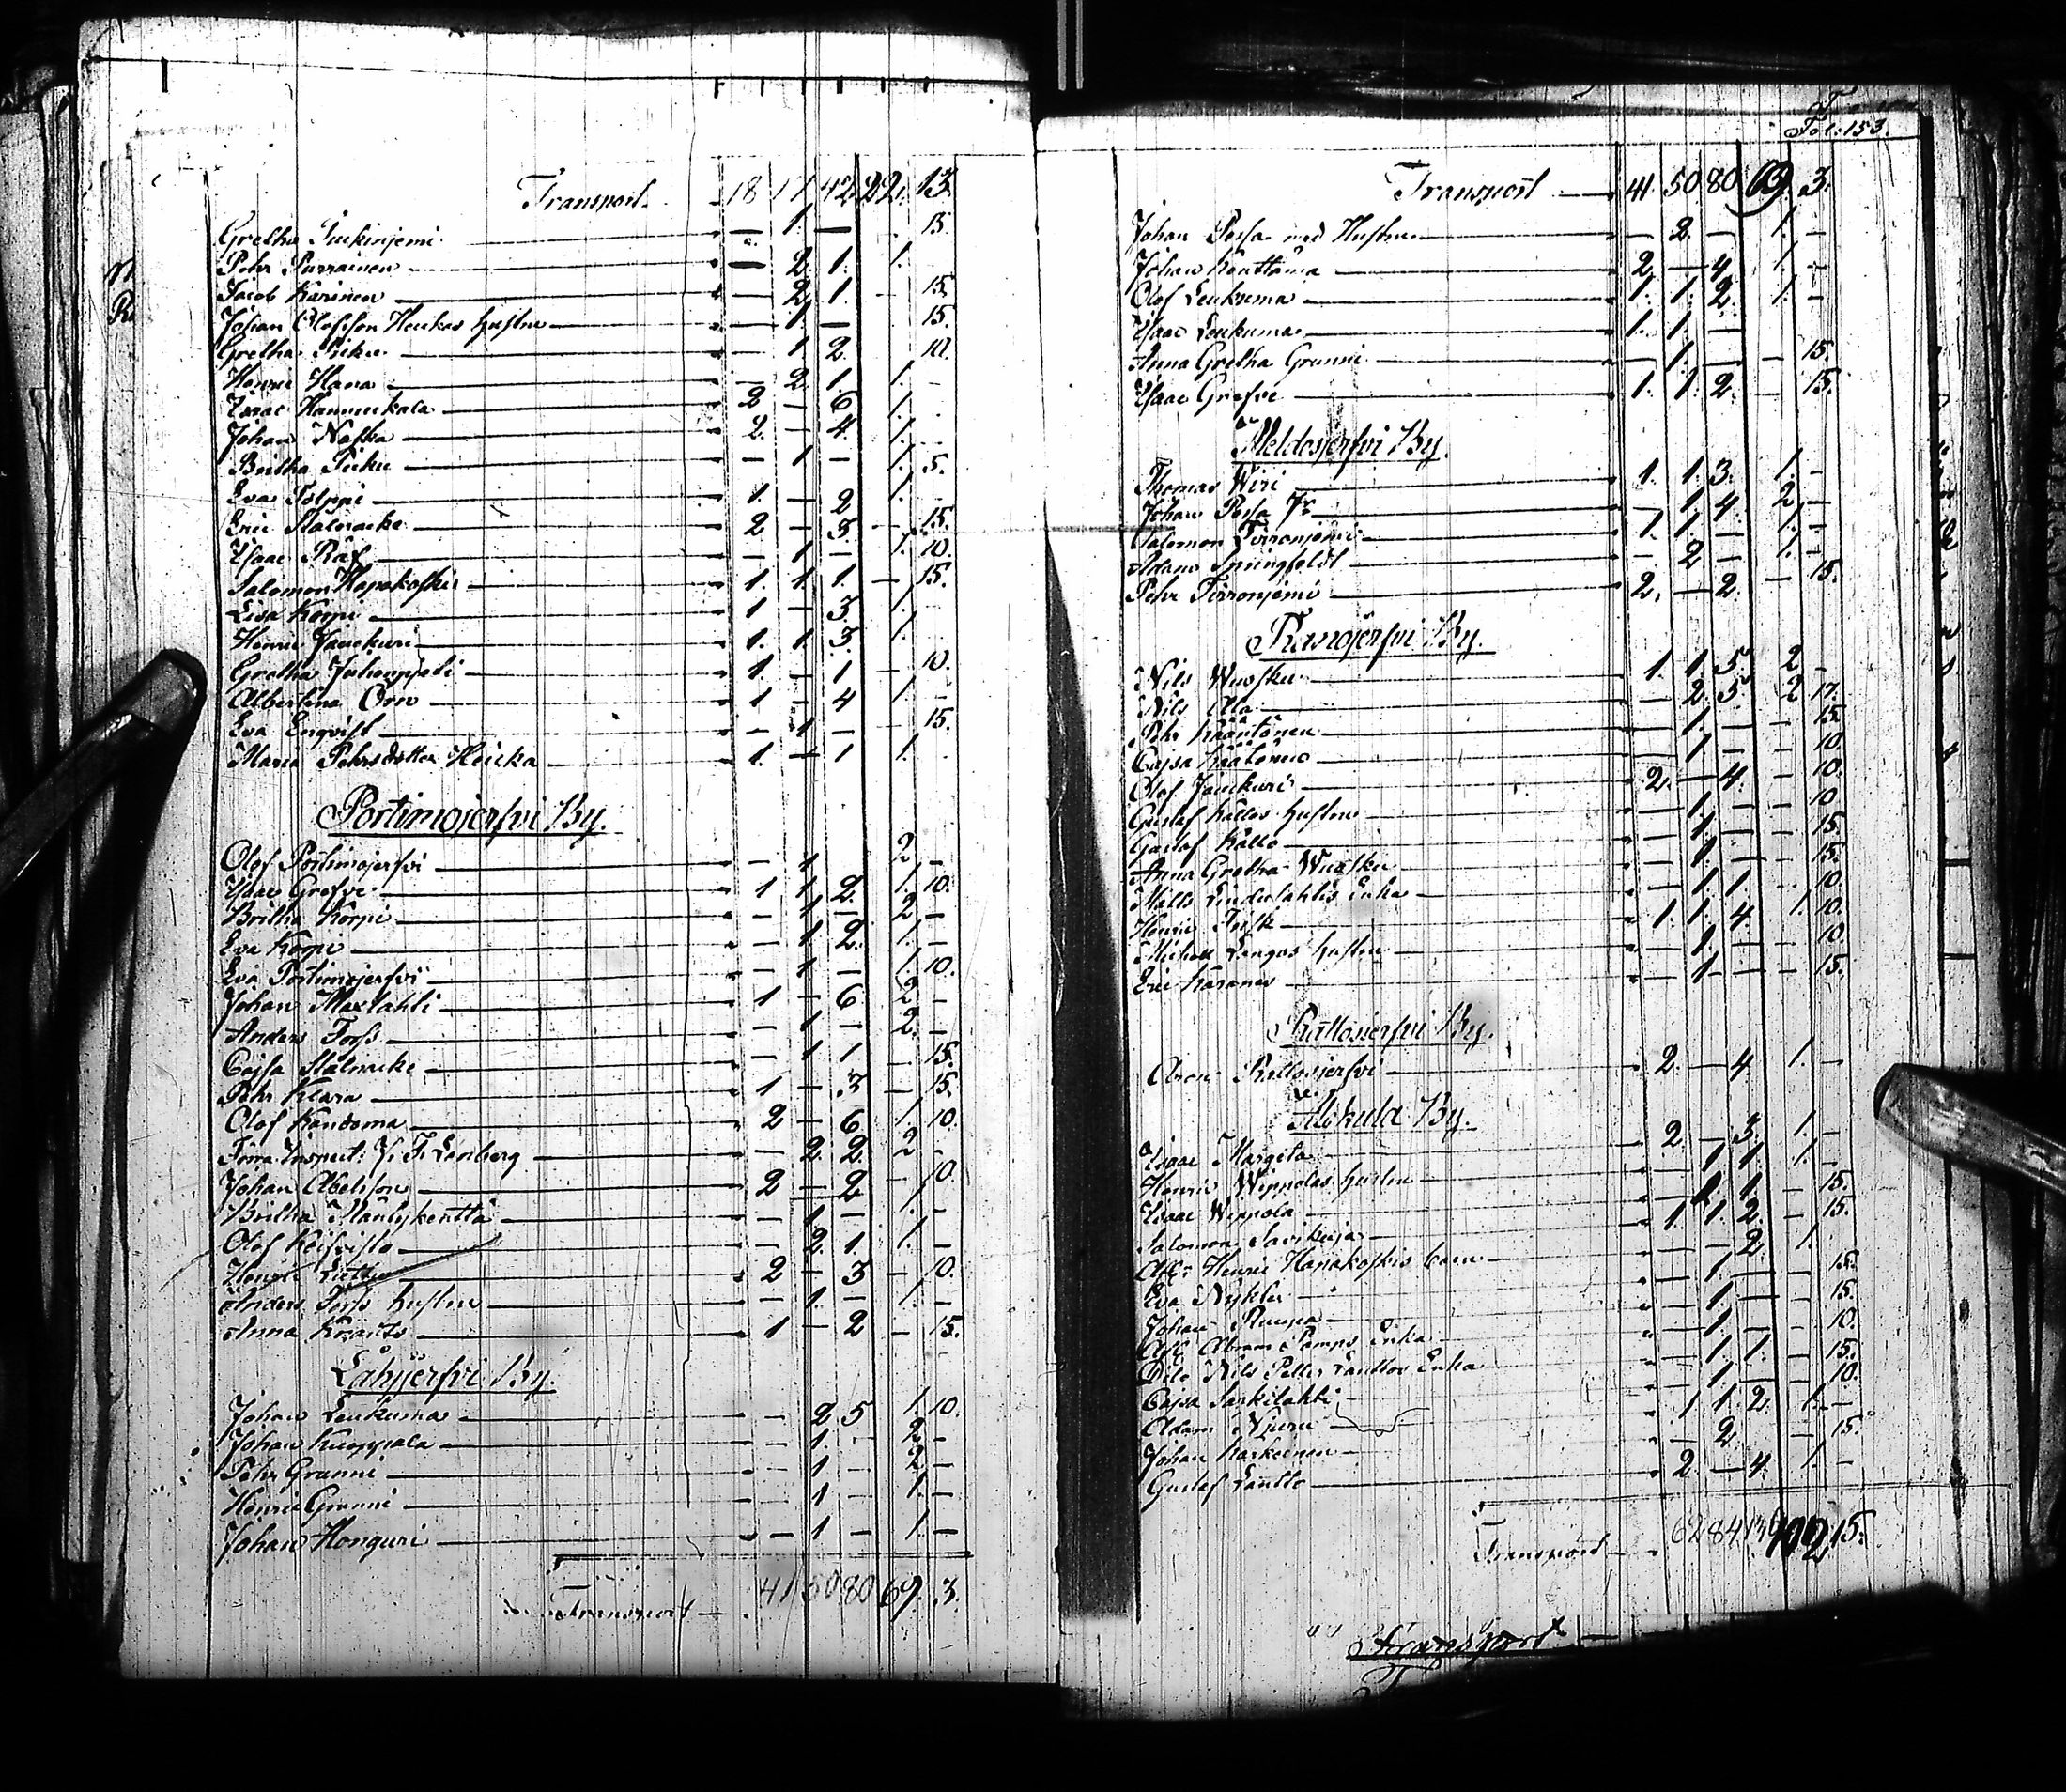 Transport 18 17 42 22 13
Gretha — 1. — 15.
Pehr Purrainen — 2. 1. 1.
Jacob Karinen — 2. 1. — 15.
Johan Olofsson Heickas hustru — 1. — 15.
Gretha — 1. 2. 10.
Henric Hana — 2. 1. 1. —
Isaac Hannukala 2 — 6. 1.
Johan Naska 2. — 4. 1. —
Britha Picku — 1 — 1. 5.
Eva Tolppi 1. — 2 1. —
Eric Stålnacke 2 — 5. — 15.
Isaac Räf — 1 — 1. 10.
Salomon Hapakoski 1. 1. 1. — 15.
Lisa Korpi 1 — 3. 1.
Henric Jauckuri 1. 1 3. 1.
Gretha 1. — 1 — 10.
Albertina Örn 1 — 4 1. —
Eva Enqvist — 1 — 15.
Maria Pehrsdotter Heicka 1. — 1 1.
Portimojerfvi By.
Olof Portimojerfvi — 1 2 —
Isaac Grefve 1 1 2. 1. 10.
Britha Korpi — 1 — 2 —
Eva Korpi — 1 2. 1. —
Eva Portimojerfvi — 1 — 1. 10.
Johan Maxlahti 1 — 6 2 —
Anders Forss — 1 — 2. —
Cajsa Stålnacke — 1 1 — 15.
Pehr Klara 1 — 3 — 15.
Olof Kandoma 2 — 6 1. 10
— 2. 2. 2
Johan Abelsson 2 — 2 — 10.
Britha Mäntykentta — 1 — 1. —
Olof Keifvisto — 2. 1. 1. —
2 — 3 — 10.
Anders Forss hustru — 1. — 1. —
Anna Krants 1 — 2 — 15.
Låhijerfvi By.
Johan Leukuma — 2 5 1. 10.
Johan Kuoppala — 1. — 2 —
Pehr Grunni — 1 — 2 —
Henric Grunni — 1 — 1. —
Johan Honguri — 1 — 1. —
Transport 41 50 80 69. 3.
Fol: 153.
Transport 41 50 80 69. 3.
Johan Possa med Hustru — 2. — 1. —
Johan Kenttämä 2 — 4 1. —
Olof Leukuma 1. 1. 2. 1. —
Isaac Leukuma 1. 1. —
Anna Gretha Grunni — 1. — — 15.
Isaac Grefve 1. 1. 2. 15.
Meldosjerfvi By.
Thomas Wiri 1. 1. 3. 1. —
Johan Possa — 1 4. 2 —
Salomon Tirronjemi 1. 1. — 1. —
Adam Springfeldt — 2 — 1. —
Pehr Tirronjemi 2. — 2. — 15.
Ranojerfvi By.
Nils Wuosku 1. 1 5. 2 —
Nils Ala — 2. 5 2 17.
Pehr Kääntönen — 1. — — 15.
Cajsa — 1 — — 10.
Olof Jauckuri 2. — 4. — 10.
Gustaf Kallos hustru — 1. — — 10
Gustaf Kallo — 1. — — 15.
Anna Gretha Wuosku — 1. — — 15.
Matts Enka — 1. 1 — 10.
Henric Frisk 1. 1. 4. 1. 10.
Michel Langas hustru — 1. — — 10
Eric Karanen — 1 — — 15.
Rattosjerfvi By.
Aron Rattosjerfvi 2. — 4. 1. —
Alkula By.
Isaac Margeta 2 — 3. 1. —
Henric Wippolas hustru — 1 1. 1. —
Isaac Wippola — 1. 1. — 15.
Salomon Savikuja 1. 1. 2. — 15.
Afl: Henric Hapakoskis barn — — 2. 1.
Eva Nykler — 1. — — 15.
Johan — 1. — — 15.
Afl: Abram Pamps Enka — 1 — — 10.
Dito Nils Petter Lauttos Enka — 1. 1. — 15.
Cajsa Särkilahti — 1. — — 10.
Adam Njuru 1 1 2 1. —
Johan Karkuinen — 2. — 15.
Gustaf Lautto 2. — 4. 1. —
Transport 62 84 136 102 15.
Transport —